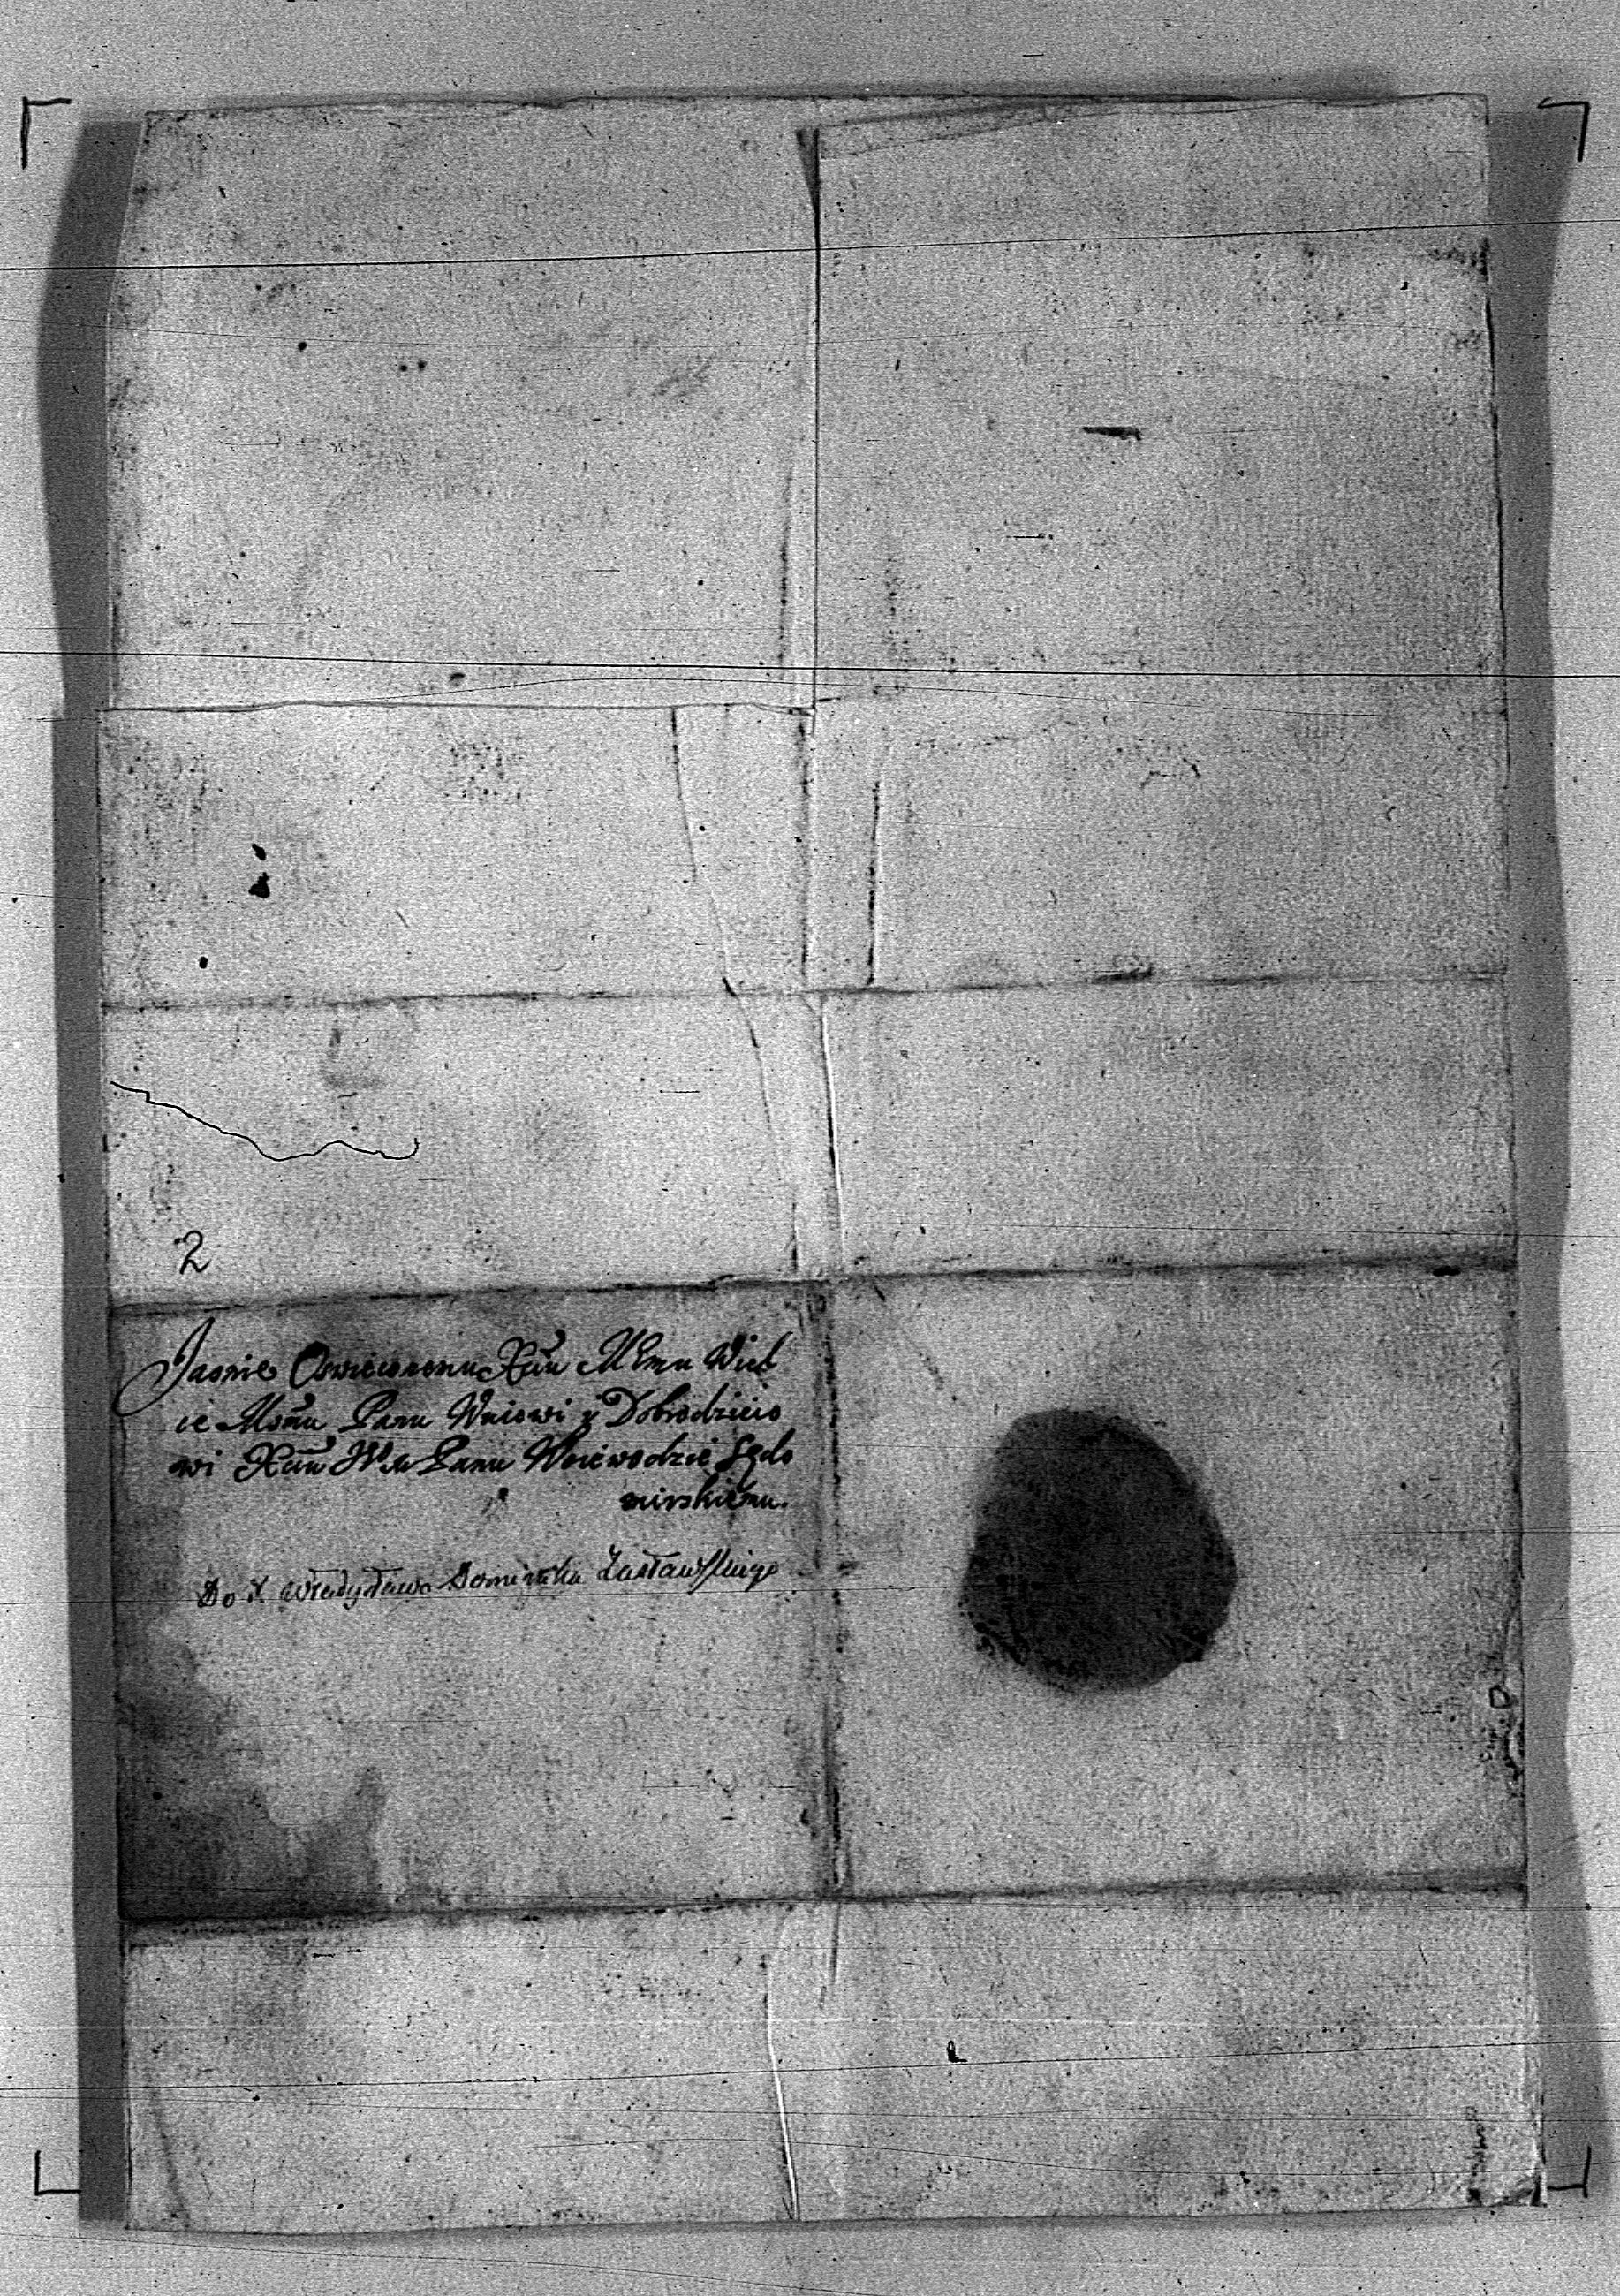 2
Jasnie Oswieconemu Xciu Msmu Wiel
ce Memu Panu Wuiowi y Dobrodzieio
wi Xciu Panu Woiewodzie Sędo
mirskiemu.
Do X. Władysława Dominika Zasławskiego